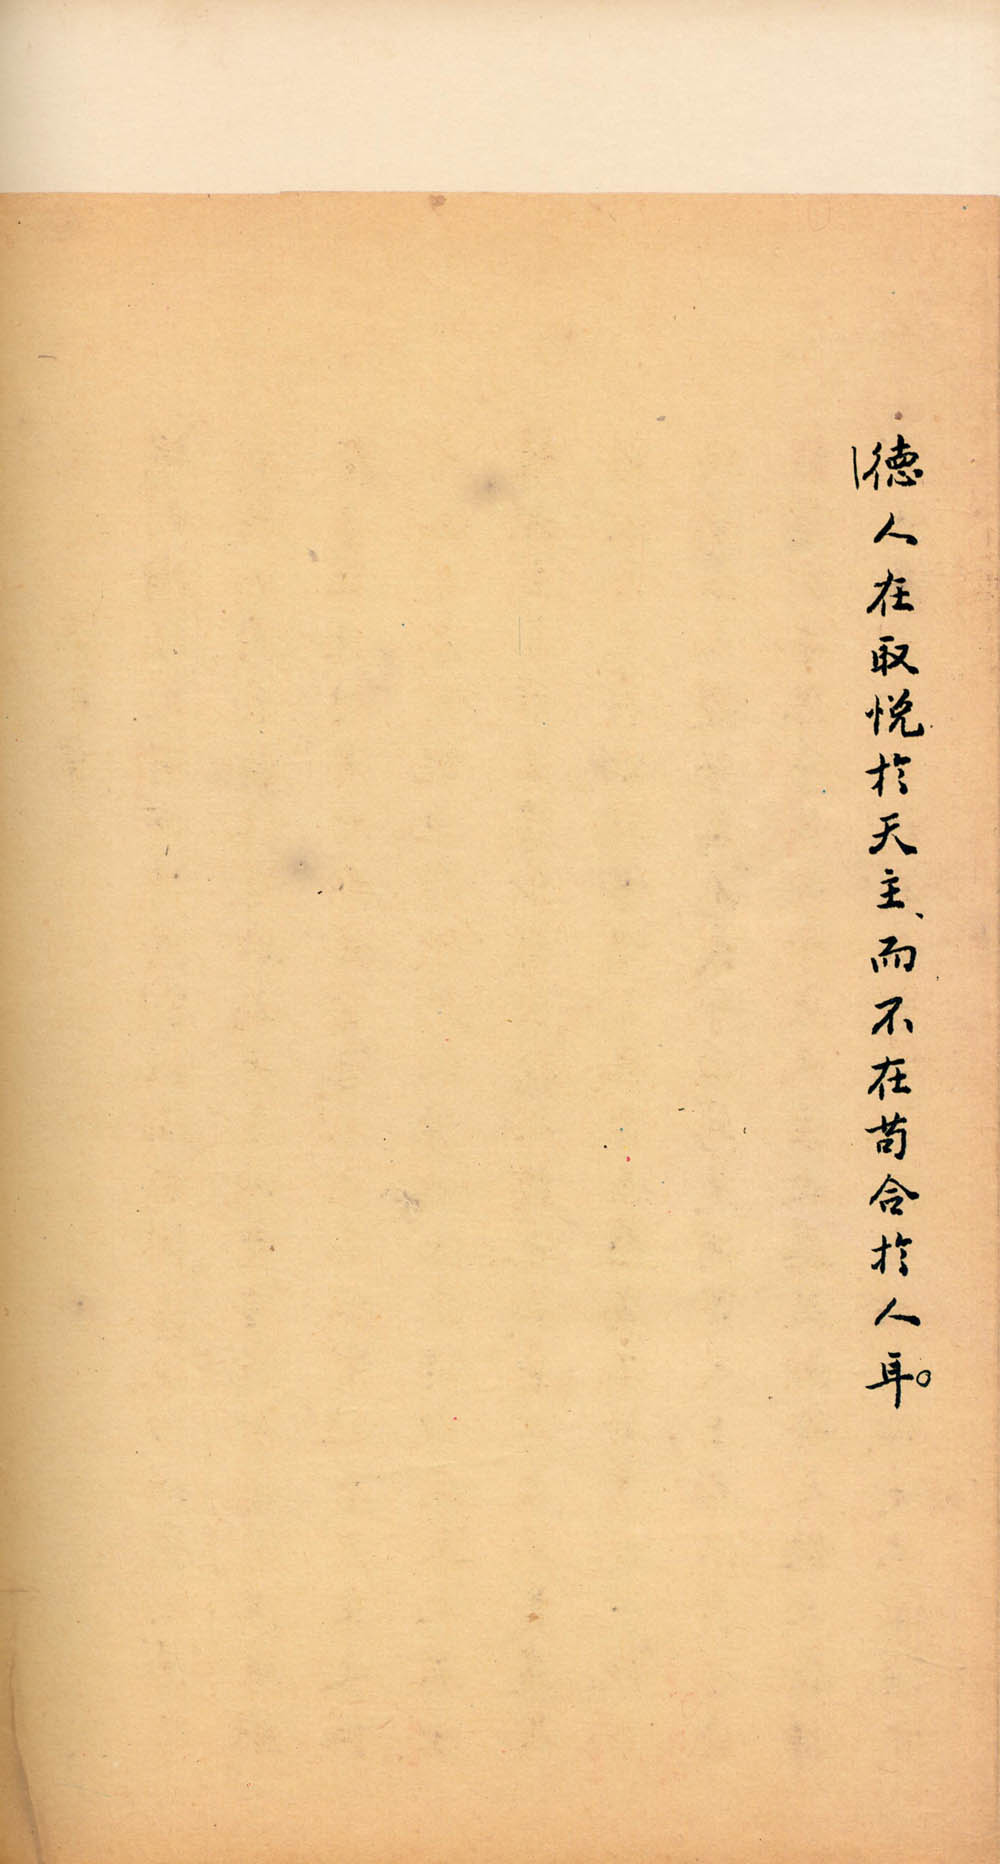 德人在取悅於天主、而不在苟合於人耳。